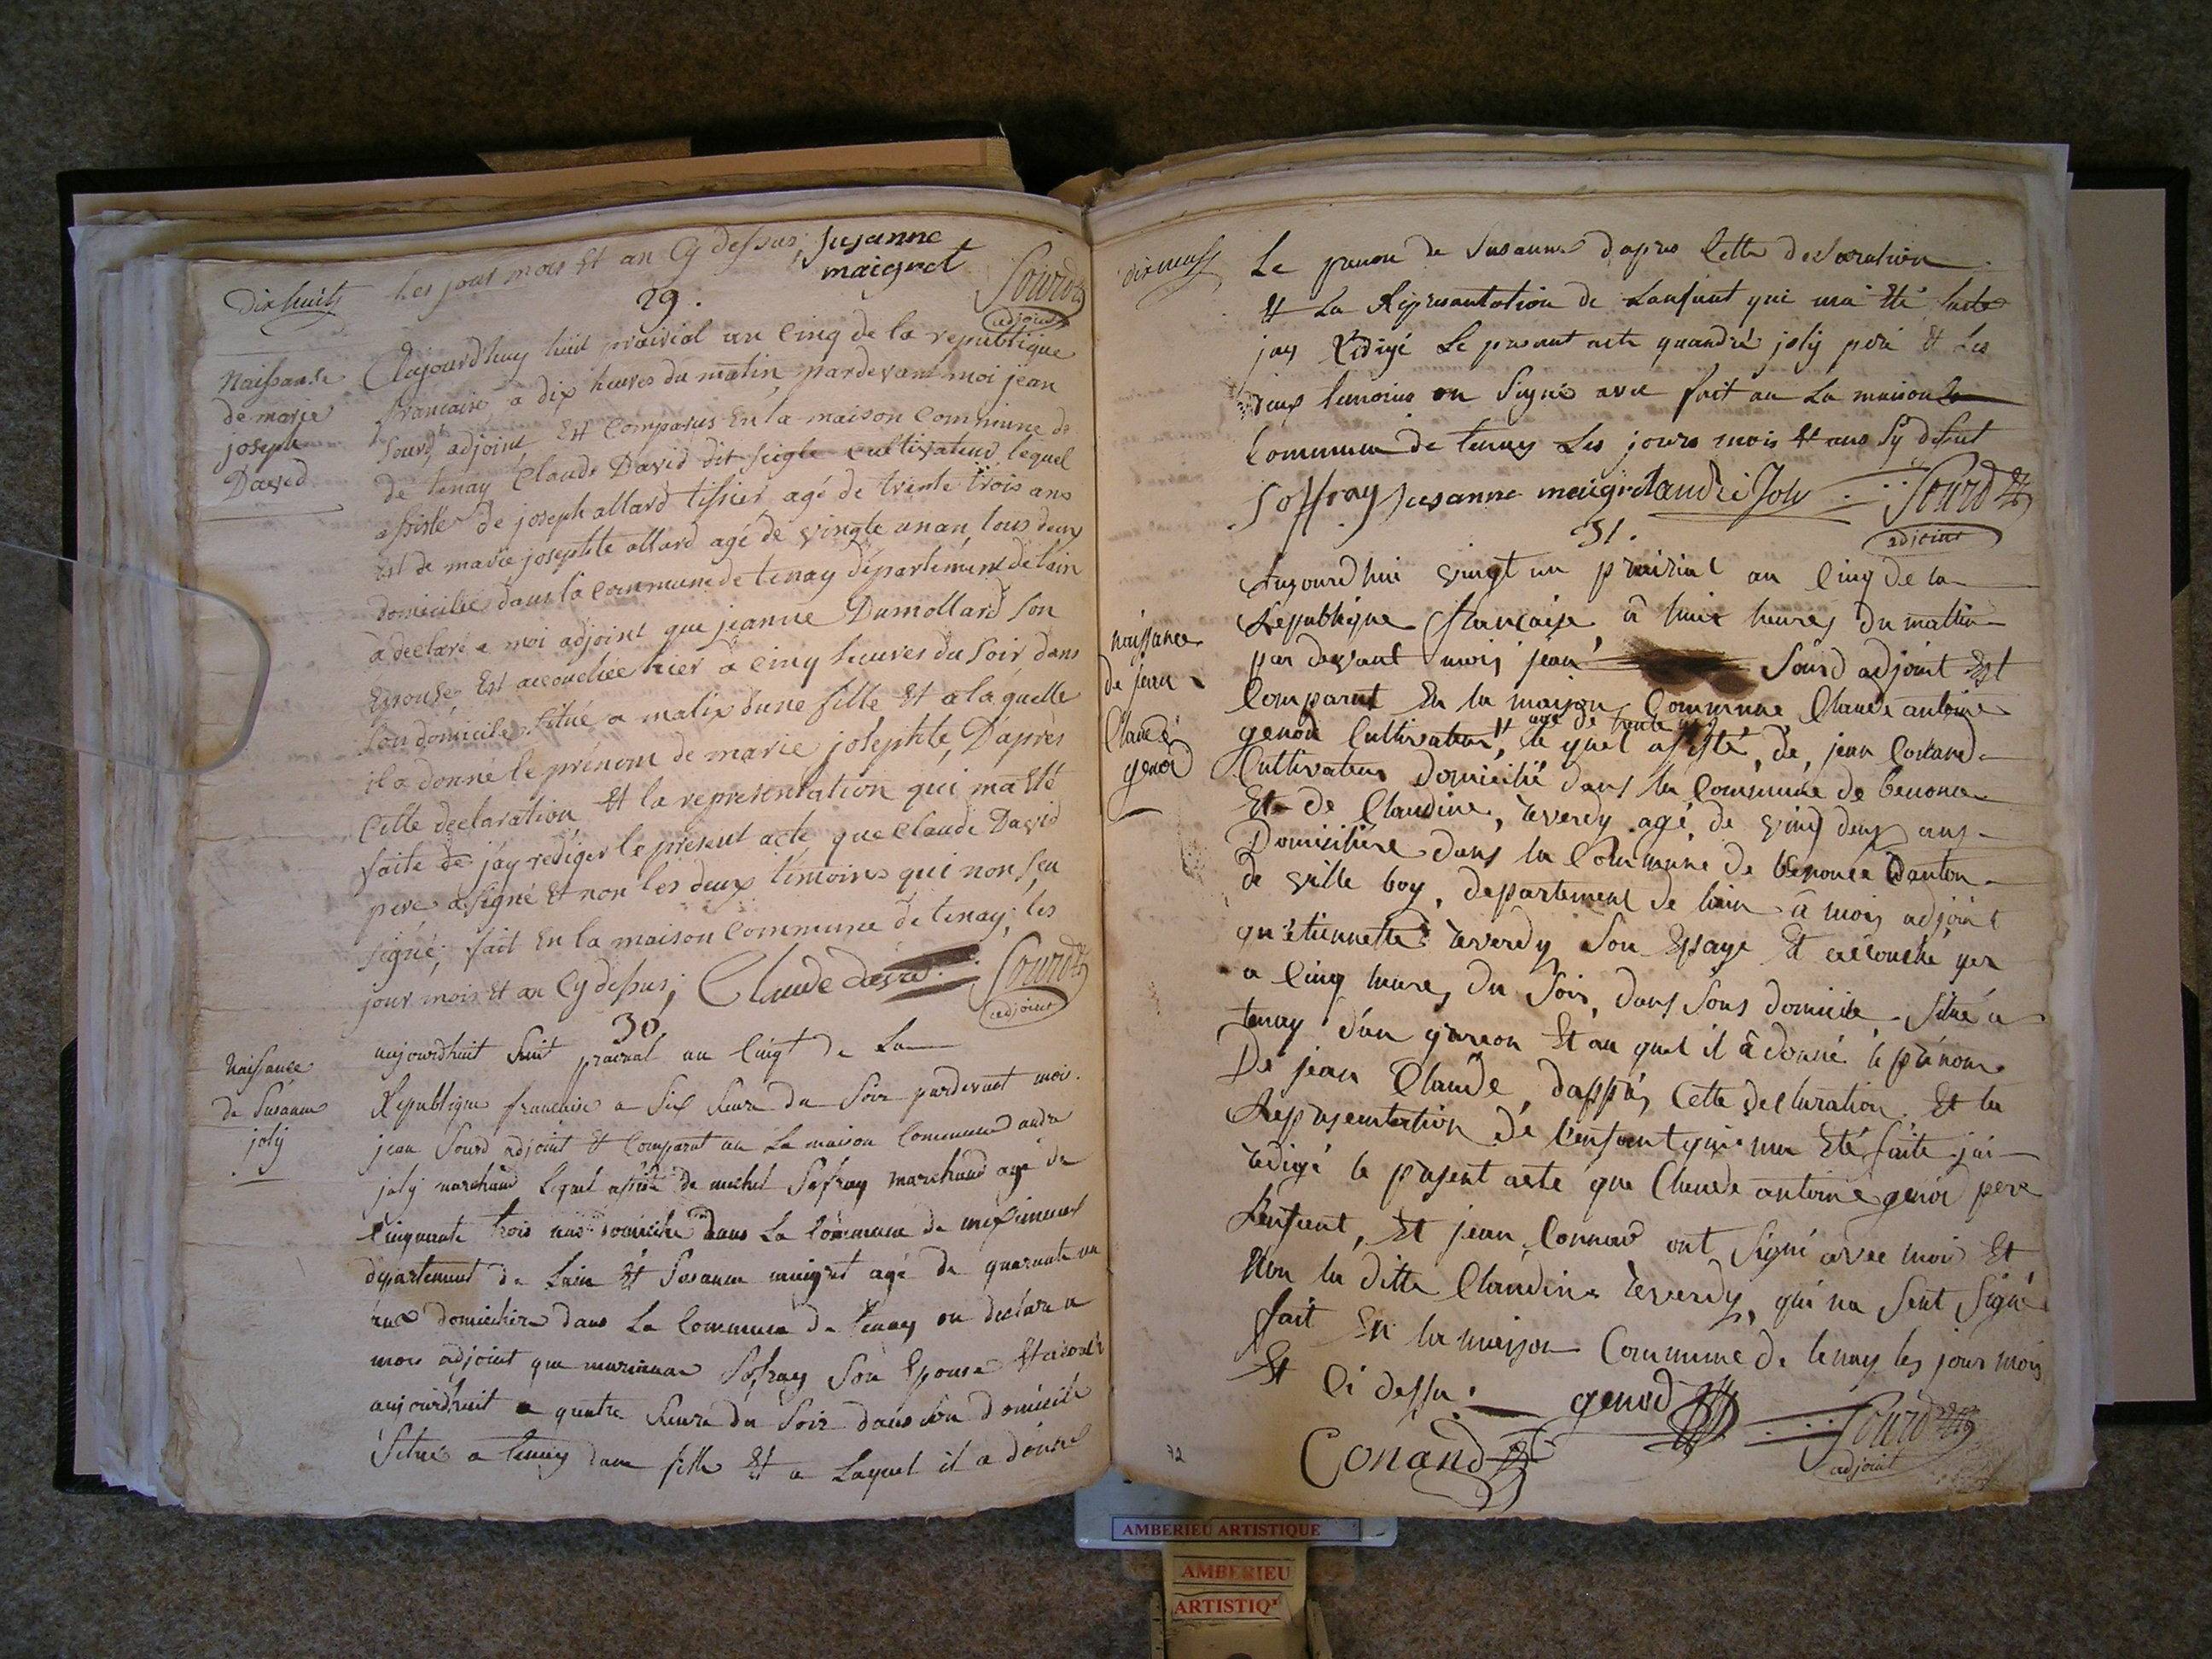 Dix huits
les jour mois Et an Cy dessus, Susanne
maigret
Sourd
adjoint
29.
Naissance
de marie
joseph
David
Aujourdhuy huit prairial an Cinq de la republique
francaire, a dix heures du matin, pardevant moi jean
Sourd, adjoint Est Comparus En la maison Commune de
de tenay Claude David dit seigle Cultivateur lequel
assisté de joseph allard tissier agé de trente trois ans
Est de marie josephte allard agé de vingte unan, tous deux
domiciliés dans la commune de tenay département de lain
a declaré a moi adjoint que jeanne Dumollard son
Epouse Est accouchée hier a cinq heures du soir dans
son domicile situé a malix dune fille Et a la quelle
il a donné le prénom de marie josephte, D'aprés
Cette declaration Et la representation qui ma Eté
faite de jay rediger le présent acte que Claude David
pere a signé Et non les deux témoins qui non seu
signé, fait En la maison Commune de tenay, les
jour mois Et an Cy dessus; Claude david Sourd
adjoint
30
Naissance
de Susanne
joly
aujourdhuit huit prairial an Cinqt de La
Republique francaise a Six heure du Soir pardevant moi
jean Sourd adjoint Et Comparut an La maison Commune andre
joly marchand Lequel assisté de michel Sofray marchand agé de
Cinquante trois ans domicilié dans La Commune de meximieux
departement de Lain Et Susanne maigret agé de quarante un
ans domicilière dans La Commune de tenay on declare a
moi adjoint que marianne Sofray Son Epouse Et acouché
aujourdhuit a quatre heure du Soir dans son domicile
Situé a tenay dune fille Et a Laquel il a donné
dix neuf
Le prenon de Susanne dapres Cette declaration
Et La Représantation de Lanfant qui ma Eté faite
jay Rédigé Le presant acte quandré joly pere Et Les
deux temoins on Signé avec fait an La maison
Commune de tenay Les jours mois Et ans Sy desut
Soffray Susanne maigret andré Joly Sourd
adjoint
31.
naissance
de jean
Claude
genod
Aujourdhui vingt un prairial an Cinq de la
Republique francaise, à huit heures du mattin
par devant moi, jean Sourd adjoint Est
Comparut En la maison Commune Claude antoine
genod Cultivateur, agé de trente ans le quel assisté, de, jean Conand
Cultivateur domicilié dans la Commune de benonce
Et de Claudine, reverdy agé, de vint deux ans
Domicilière dans la Commune de benonce Canton
de ville boy, departement de lain a moi, adjoint
qu'etiennette reverdy Son Epouse Et accouché yer
a Cinq heures du Soir, dans Sons domicile Situé a
tenay d'un garcon Et au quel il a donné le prénom
De jean Claude, dapprés Cette declaration Et la
Représentation de l'enfant qui ma Eté faite jai
redigé le présent acte que Claude antoine genod pere
L'enfant, Et jean Connad ont Signé avec moi Et
Non la ditte Claudine reverdy, qui na Sent Signé
fait En la maison Commune de tenay les jour mois
Et Ci dessu. genod
Conand Sourd
adjoint
72
AMBERIEU ARTISTIQUE
AMBERIEU
ARTISTIQ